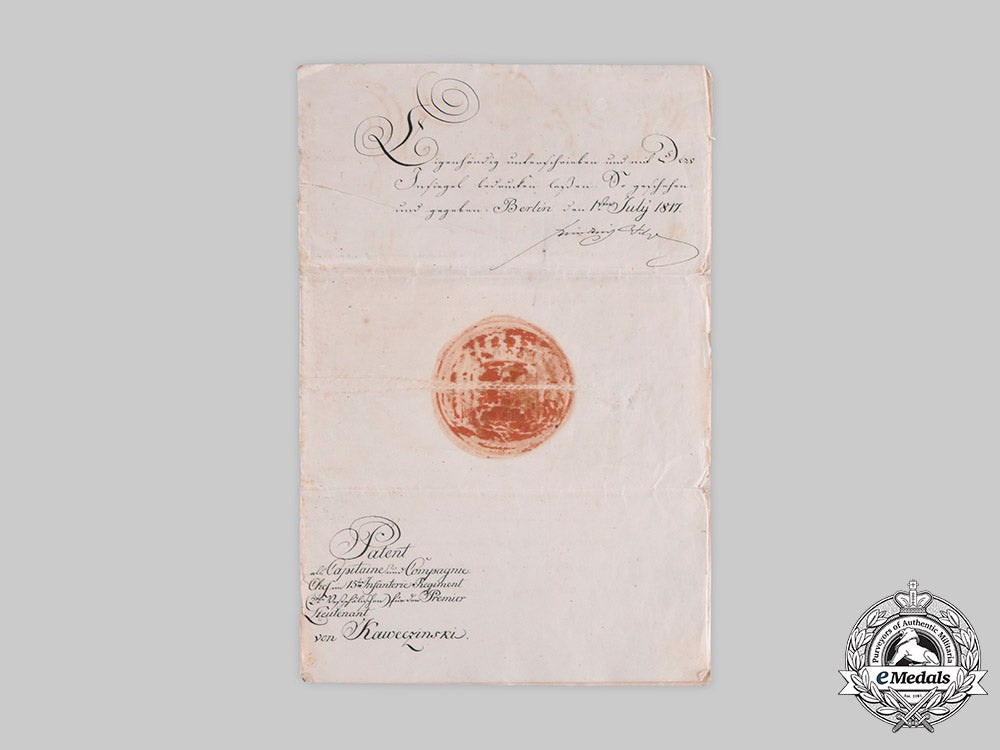 Eigenhändig unterschrieben und mit Dero
Insiegel bedrucken laßen. So geschehen
und gegeben Berlin den 1ten July 1817.
Patent
als Capitaine und Compagnie
Chef im 15ten Infanterie Regiment
für den Premier
Lieutenant
von Kaweczinski.
Purveyors of Authentic Militaria
eMedals